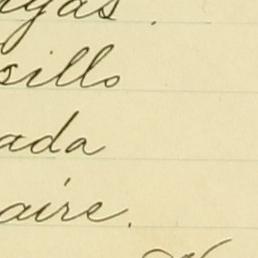 sillo
ada
aire.